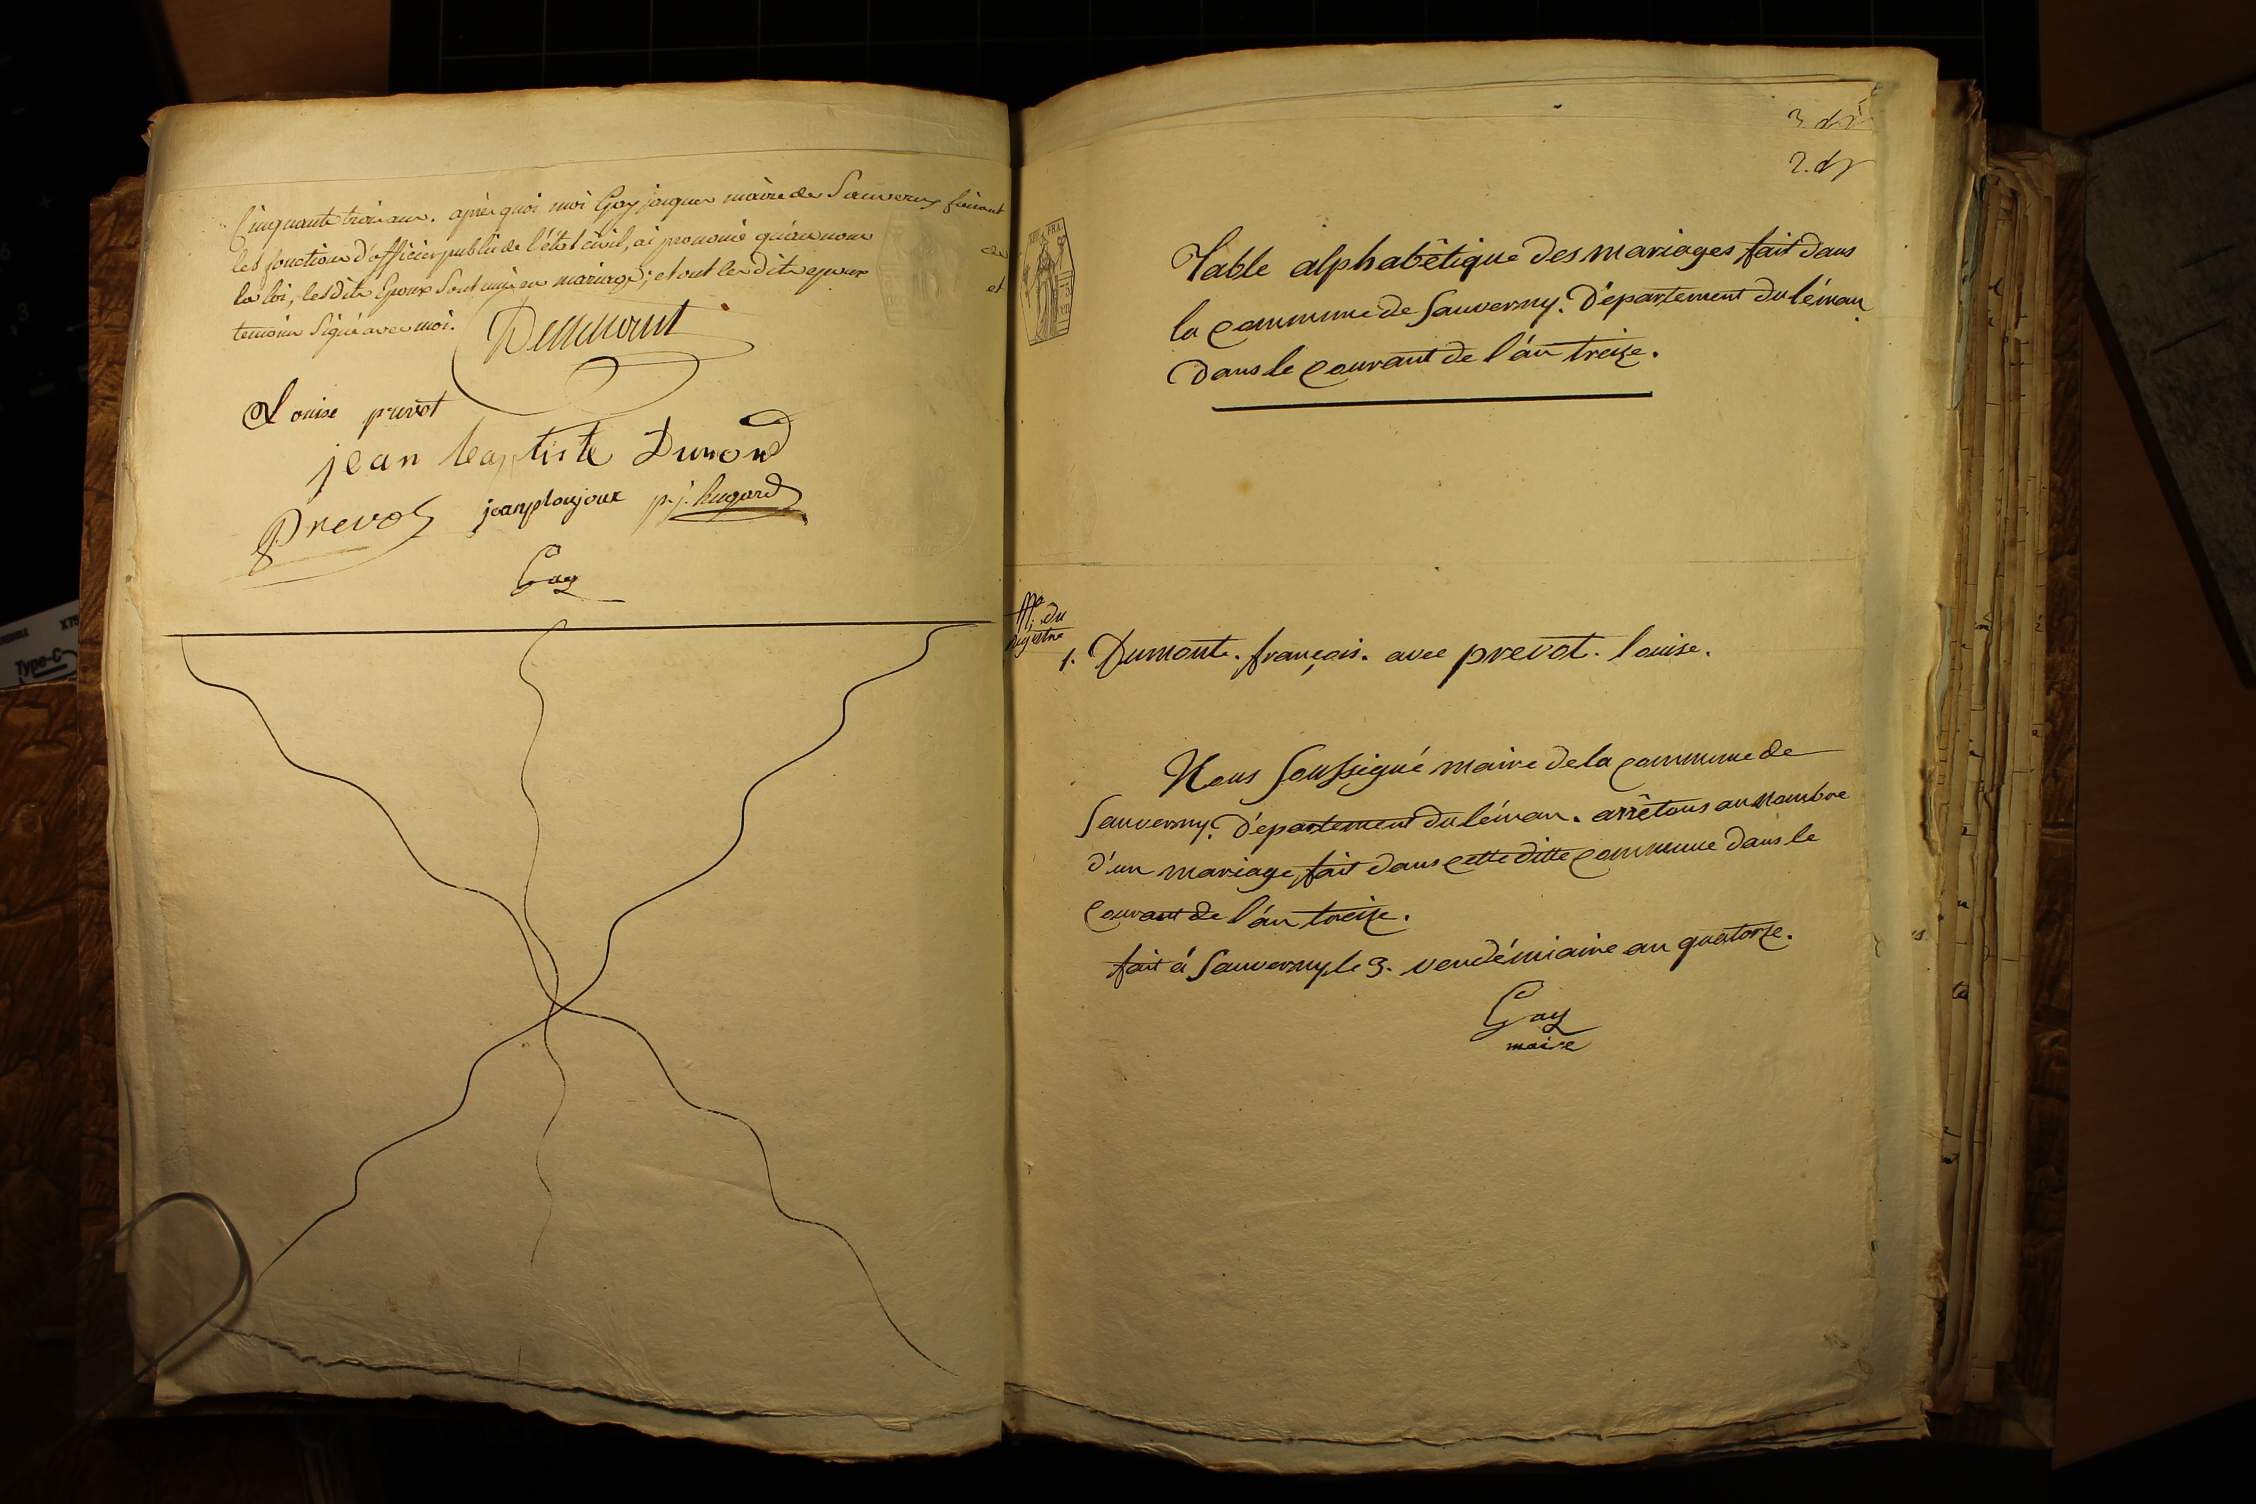 Cinquante trois ans. après quoi moi Gay jacques maire de Sauverny faisant
les fonction d'officier public de l'état civil, ai prononcé qu'au nom de
la loi, lesdits Epoux sont unis en mariage; et ont lesdits epoux et
temoins signé avec moi.
Dumont
Louise prevot
jean baptiste Dumond
Prevot jean p. j. hugard
Gay
Table alphabêtique des mariages fait dans
la commune de Sauverny. Département du léman
dans le courant de l'án treize.
du
Registre
1. Dumont. françois. avec prevot. louise.
Nous soussigné maire de la commune de
Sauverny. Département du léman. arrêtons au nombre
d'un mariage, fait dans cette ditte commune dans le
Courant de l'án treize.
fait á Sauverny, le 3. vendémiaire an quatorze.
Gay
maire
Type-C